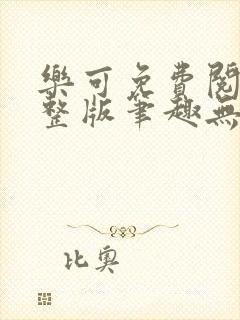 樂可免費閱
整版筆趣無
比奧